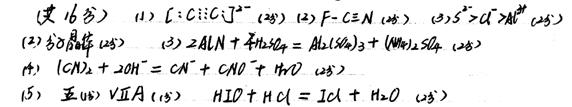 (共16分) (1) [:C⋮⋮C:]²⁻ (2分) (2) F-C≡N (2分) (3) S²⁻>Cl⁻>Al³⁺ (2分)
(2) 分子晶体 (2分) (3) 2AlN + 4H₂SO₄ = Al₂(SO₄)₃ + (NH₄)₂SO₄ (2分)
(4) (CN)₂ + 2OH⁻ = CN⁻ + CNO⁻ + H₂O (2分)
(5) 五 (1分) VIIA (1分) HIO + HCl = ICl + H₂O (2分)